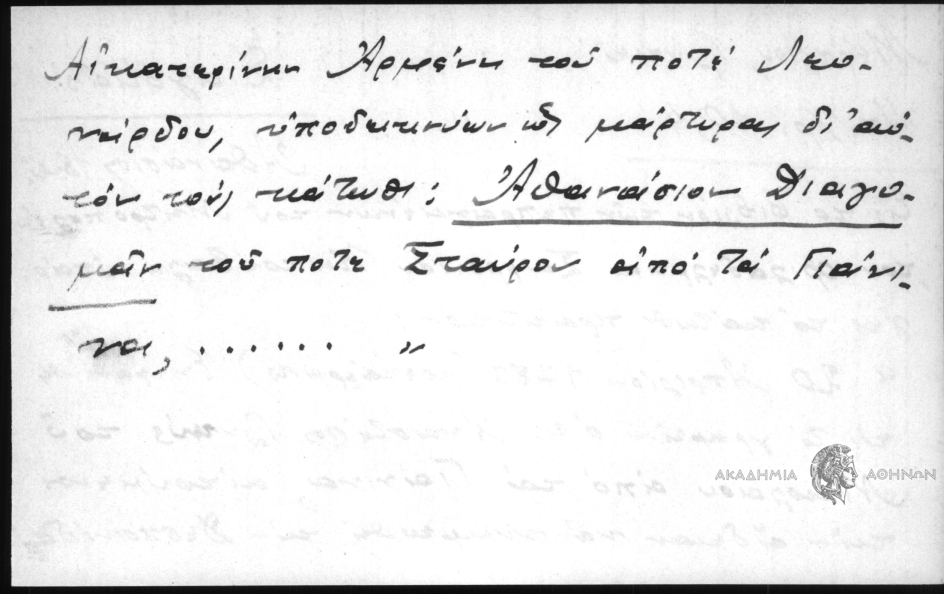 Αἰκατερίνην Ἀρμένη τοῦ ποτέ Λεο-
νάρδου, ὑποδεικνύων ὡς μάρτυρας δι' αὐ-
τόν τούς κάτωθι: Ἀθανάσιον Διαγο-
μᾶν τοῦ ποτε Σταύρου ἀπό τά Γιάνι-
να, ...... "
ΑΚΑΔΗΜΙΑ ΑΘΗΝΩΝ